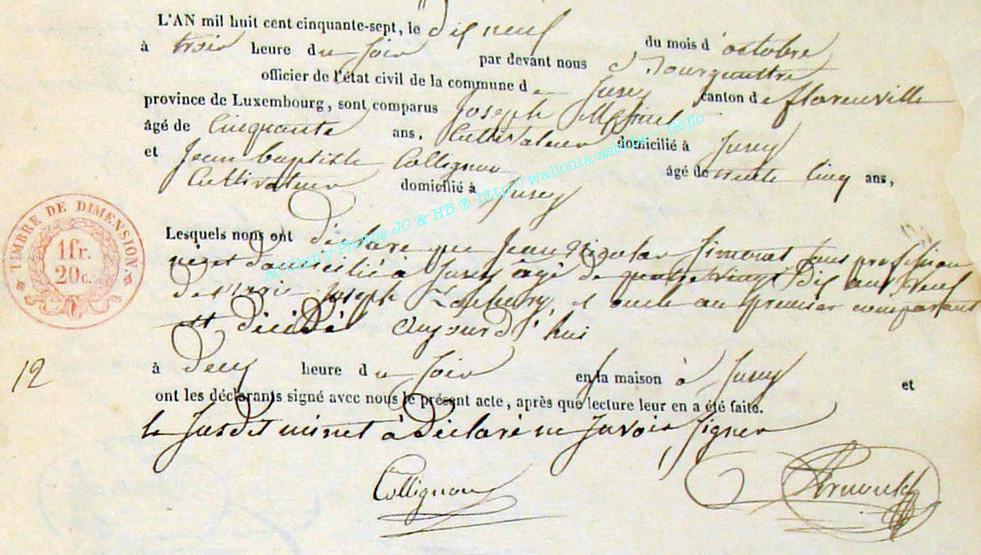 L'AN mil huit cent cinquante-sept, le dix neuf
du mois d'octobre
à trois heure du soir par devant nous
officier de l'état civil de la commune de canton de florenville
province de Luxembourg, sont comparus Joseph
âgé de Cinquante ans, Cultivateur domicilié à
et Jean baptiste Collignon âgé de cinq ans,
Cultivateur domicilié à
Lesquels nous ont déclaré que Jean Simonet sans profession
domicilié à agé de quatre vingt dix ans veuf
de Joseph oncle au premier comparant
est décédé aujourd'hui
à deux heure du soir en la maison à et
ont les déclarants signé avec nous le présent acte, après que lecture leur en a été faite.
le susdit à déclaré ne savoir signer
Collignon
TIMBRE DE DIMENSION.
1 fr.
20 c.
12